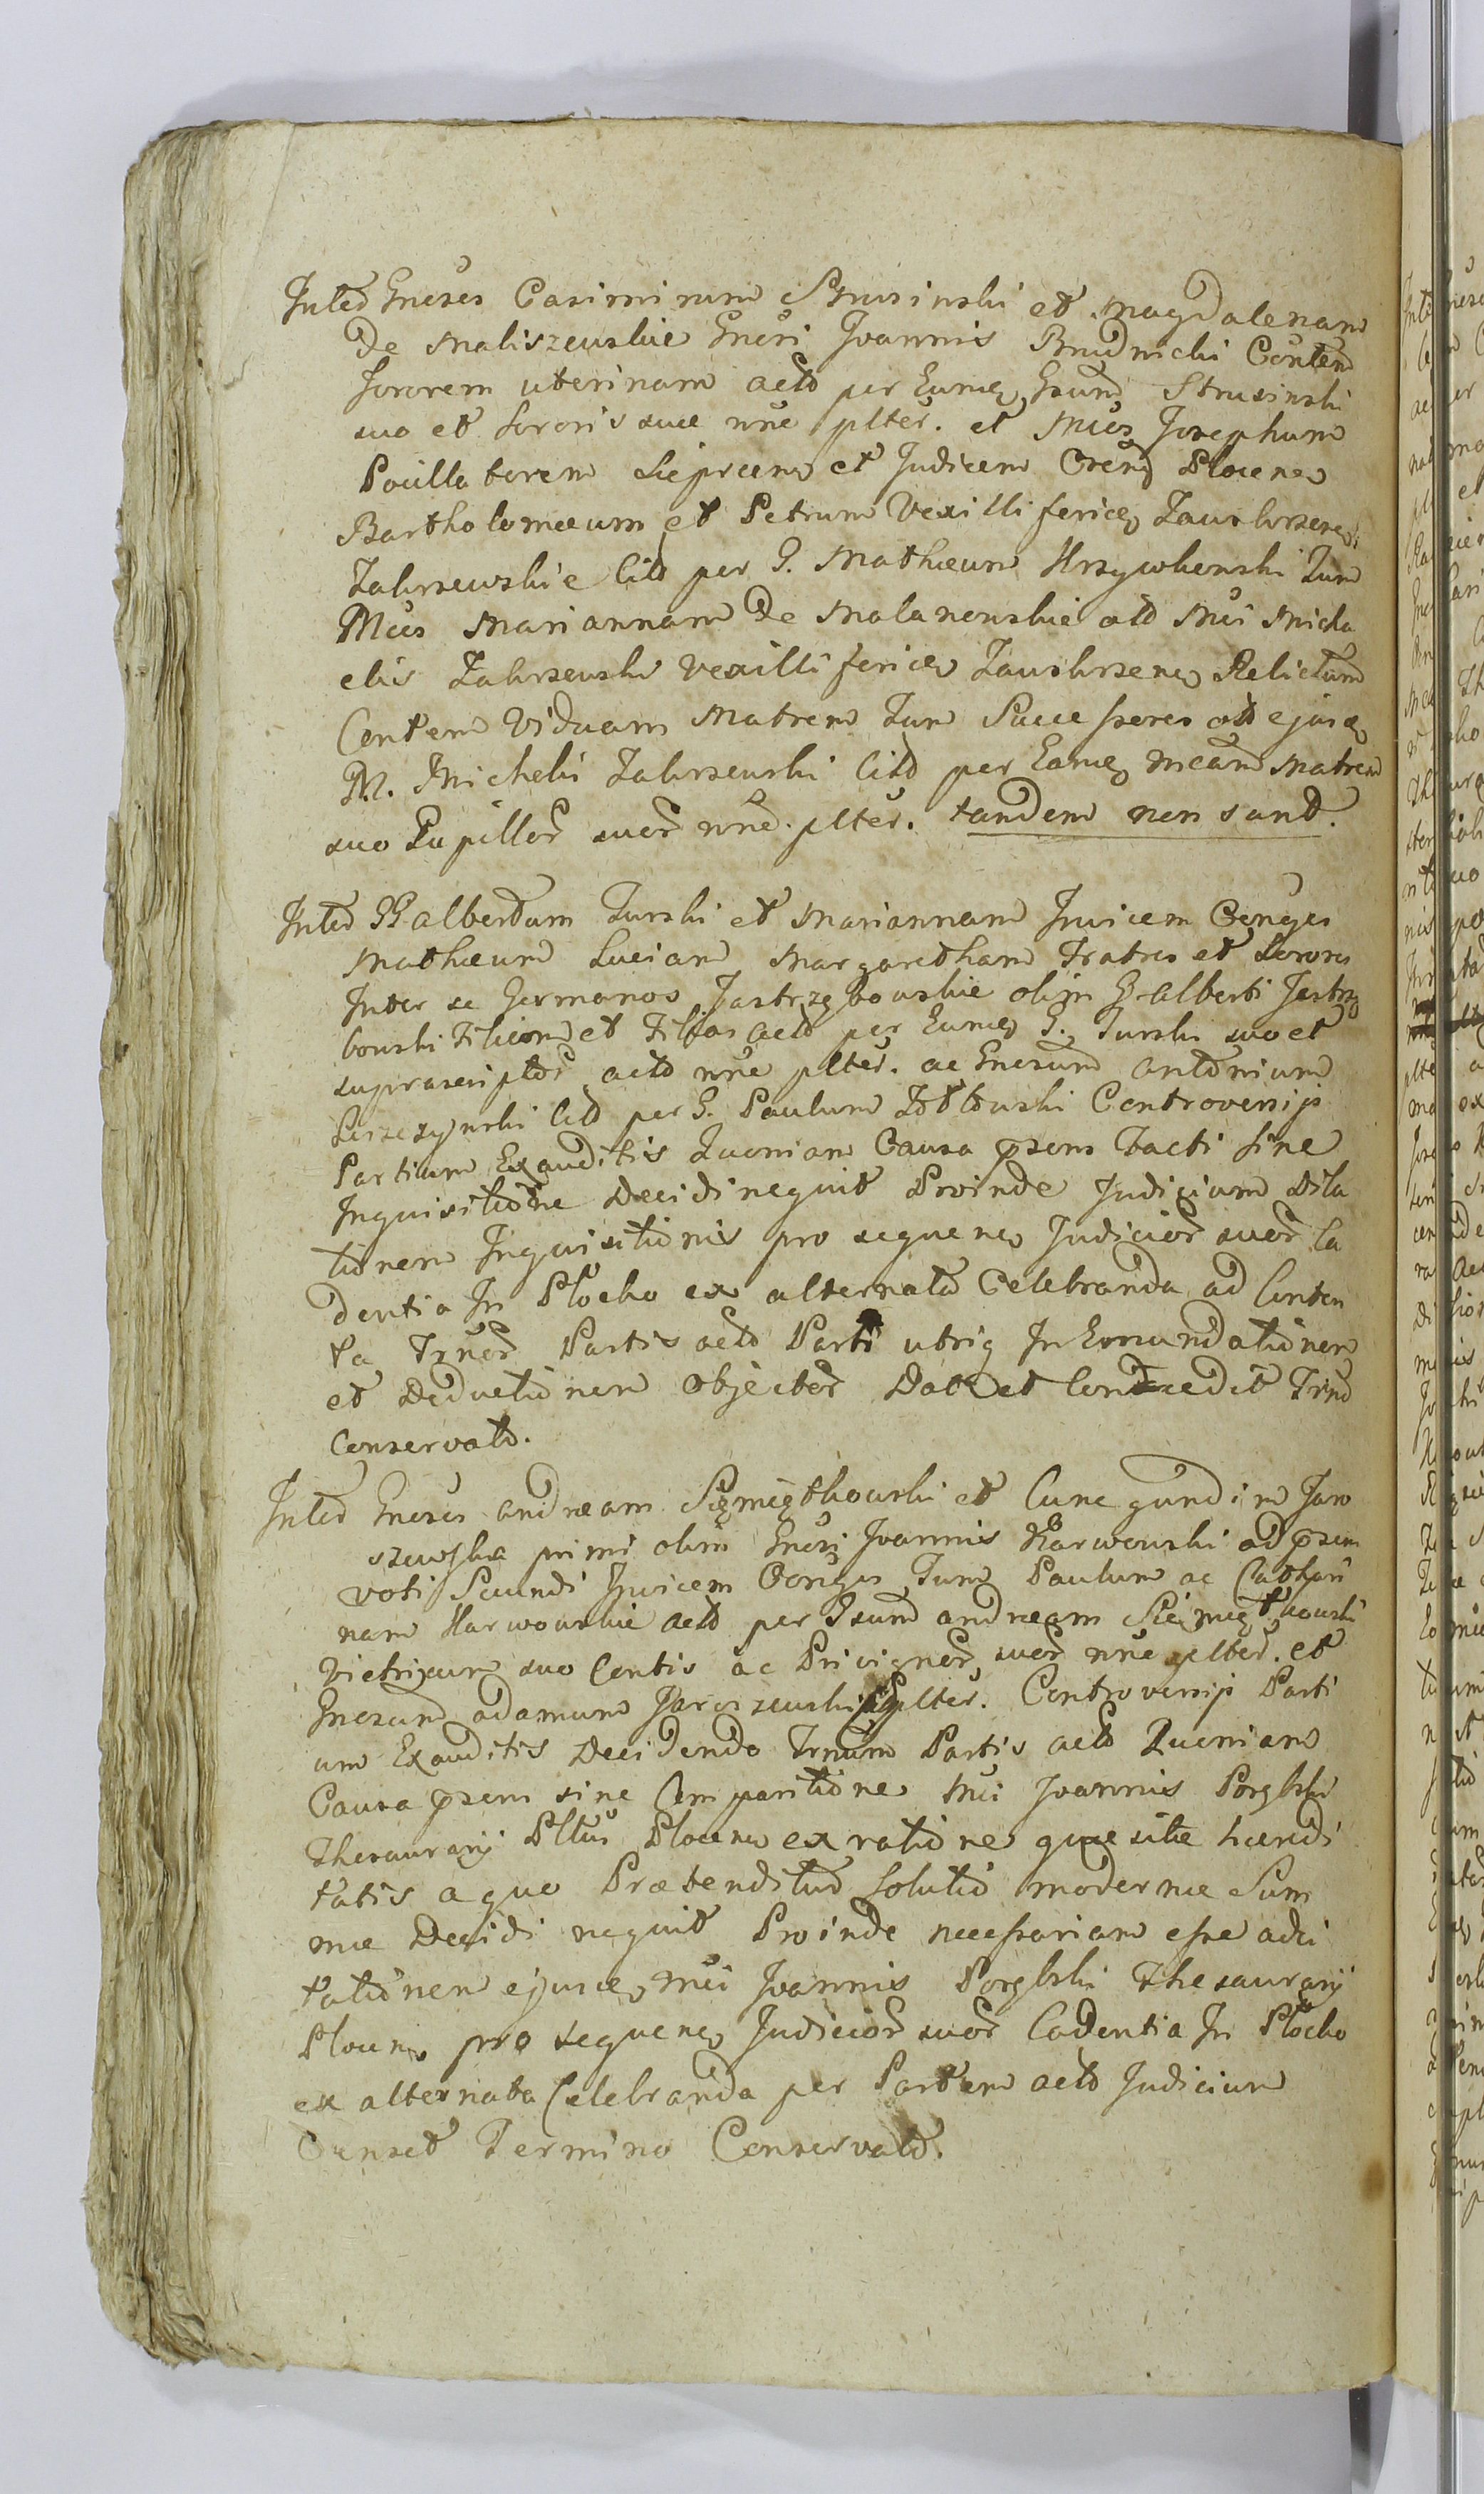 Inter Gnesos Casimirum Strusinski et Magdalenam
de Maliszewskie Gnosi Joannis Brudnicki Contem
sororem uterinam acto per Eumq Gsum Strusinski
suo et sororis suæ nne plter. et Mcos Josephum
Pocillatorem Lieprcem et Judicem Crem Plocen
Bartholomæum et Petrum Vexilliferides Zawkrzen
Zakrzewskie cito per G. Mathæum Krzywkowski Tum
Mcos Mariannam de Malanowskie olo Mci Micha
elis Zakrzewski Vexilliferi Zawkrzen Relictam
Contem Viduam Matrem Tum Successores olo ejusd
M. Michelis Zakrzewski cito per Eamq Mcam Matrem
suo Pupillor suor nne plter. tandem non sunt.
Inter GG Albertum Turski et Mariannam Invicem Conges
Mathæum Luciam Margaretham Fratres et Sorores
Inter se Germanos Jastrzębowskie olim G. Alberti Jastrzę
bowski Filium et Filias acto per Eumq G. Turski suo et
suprascriptor acto nne plter. ac Gnesum Antonium
cito per G. Paulum Controversijs
Partium Exauditis Quoniam Causa psens facti sine
Inquisitione Decidi nequit Proinde Judicium Dila
tionem Inquisitionis pro sequen Judicior suor Ca
dentia In Plocko ex alternata Celebranda ad Conten
ta Trnor Partis acto Parti utriq In Emundationem
et Deductionem Objector Dat et Concedit Trno
Conservato.
Inter Gnesos Andream Siemiętkowski et Cunegundim Jaro
szewska primi olim Gnosi Joannis Karwowski ad psens
voti Secundi Invicem Conges Tum Paulum ac Cathari
nam Karwowskie acto per Gsum Andream Siemiętkowski
Vietricum suo Contis ac Privignor suor nne plter. et
Gnesum Adamum Jaroszewski plter. Controversijs Parti
um Exauditis Decidendo Trnum Partis acto Quoniam
Causa psens sine Comparitione Mci Joannis Porębski
Thesaurarij Pltus Plocen ex ratione quæsitæ hæredi
tatis a quo Prætenditur solutio modernæ Sum
mæ Decidi nequit Proinde necessariam esse adci
tationem ejusd Mci Joannis Porębski Thesaurarij
Plocen pro sequen Judicior suor Cadentia In Plocko
ex alternata Celebranda per Partem acto Judicium
Censet Termino Conservato.